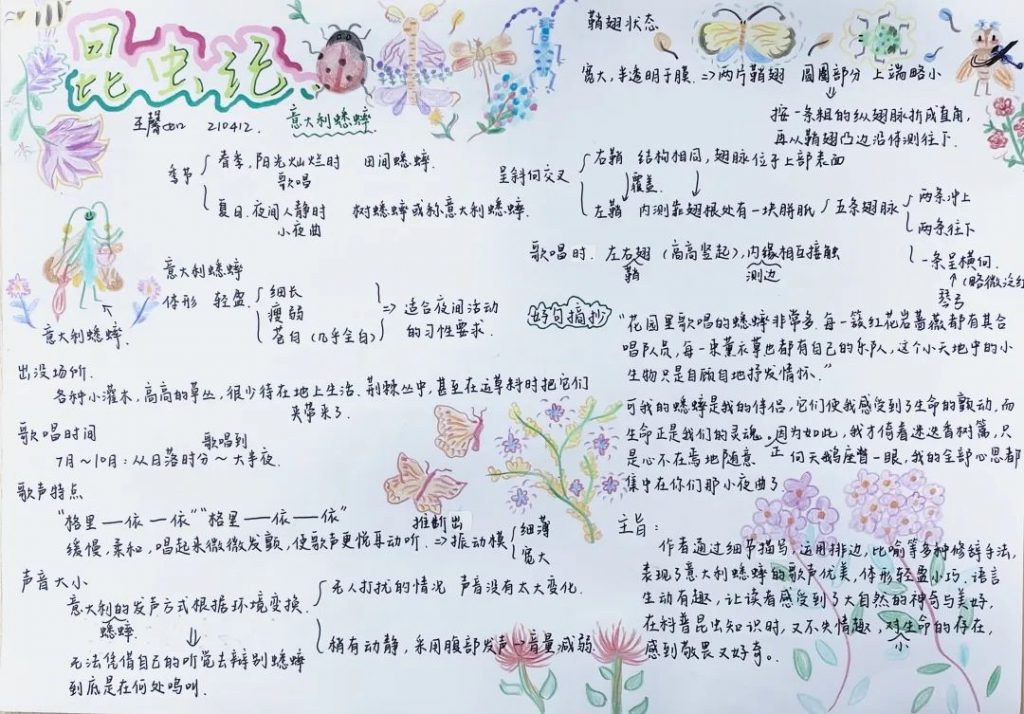 昆虫记
王馨 210412.
意大利蟋蟀
季节
春季,阳光灿烂时 田间蟋蟀.
歌唱
夏日.夜间人静时 树蟋蟀或称意大利蟋蟀.
小夜曲
意大利蟋蟀
体形 轻盈.
细长
瘦弱
苍白(几乎全白)
=> 适合夜间活动
的习性要求.
意大利蟋蟀.
出没场所.
各种小灌木,高高的草丛,很少待在地上生活.荆棘丛中,甚至在运草料时把它们
夹带来了.
歌唱时间
歌唱到
7月~10月:从日落时分~大半夜.
歌声特点
“格里——依一依”“格里——依——依”
缓慢,柔和,唱起来微微发颤,使歌声更悦耳动听.=>振动膜
推断出
细薄
宽大
声音大小
意大利的发声方式根据环境变换.
蟋蟀.
无法凭借自己的听觉去辨别蟋蟀
到底是在何处鸣叫.
无人打扰的情况 声音没有太大变化.
稍有动静,采用腹部发声→音量减弱.
鞘翅状态
宽大,半透明干膜.=>两片鞘翅 圆圈部分 上端略小
按一条粗的纵翅脉折成直角,
再从鞘翅凸边沿侍测往下.
呈斜向交叉
右鞘 结构相同,翅脉位于上部表面
覆盖.
左鞘 内测靠翅根处有一块胼胝
五条翅脉
两条冲上
两条往下
一条呈横向.
(略微泛红
琴弓
歌唱时. 左右翅(高高竖起),内缘相互接触
鞘
测边
好句摘抄
“花园里歌唱的蟋蟀非常多.每一簇红花岩蔷薇都有其合
唱队员,每一束薰衣草也都有自己的乐队,这个小天地中的小
生物只是自顾自地抒发情怀.”
可我的蟋蟀是我的伴侣,它们使我感受到了生命的颤动,而
生命正是我们的灵魂。因为如此,我才倚着迷迭香树篱,只
正
是心不在焉地随意 向天鹅座瞥一眼,我的全部心思都
集中在你们那小夜曲了
主旨:
作者通过细节描写,运用排边,比喻等多种修辞手法,
表现了意大利蟋蟀的歌声优美,体形轻盈小巧.语言
生动有趣,让读者感受到了大自然的神奇与美好,
在科普昆虫知识时,又不失情趣,对生命的存在,
小
感到敬畏又好奇。